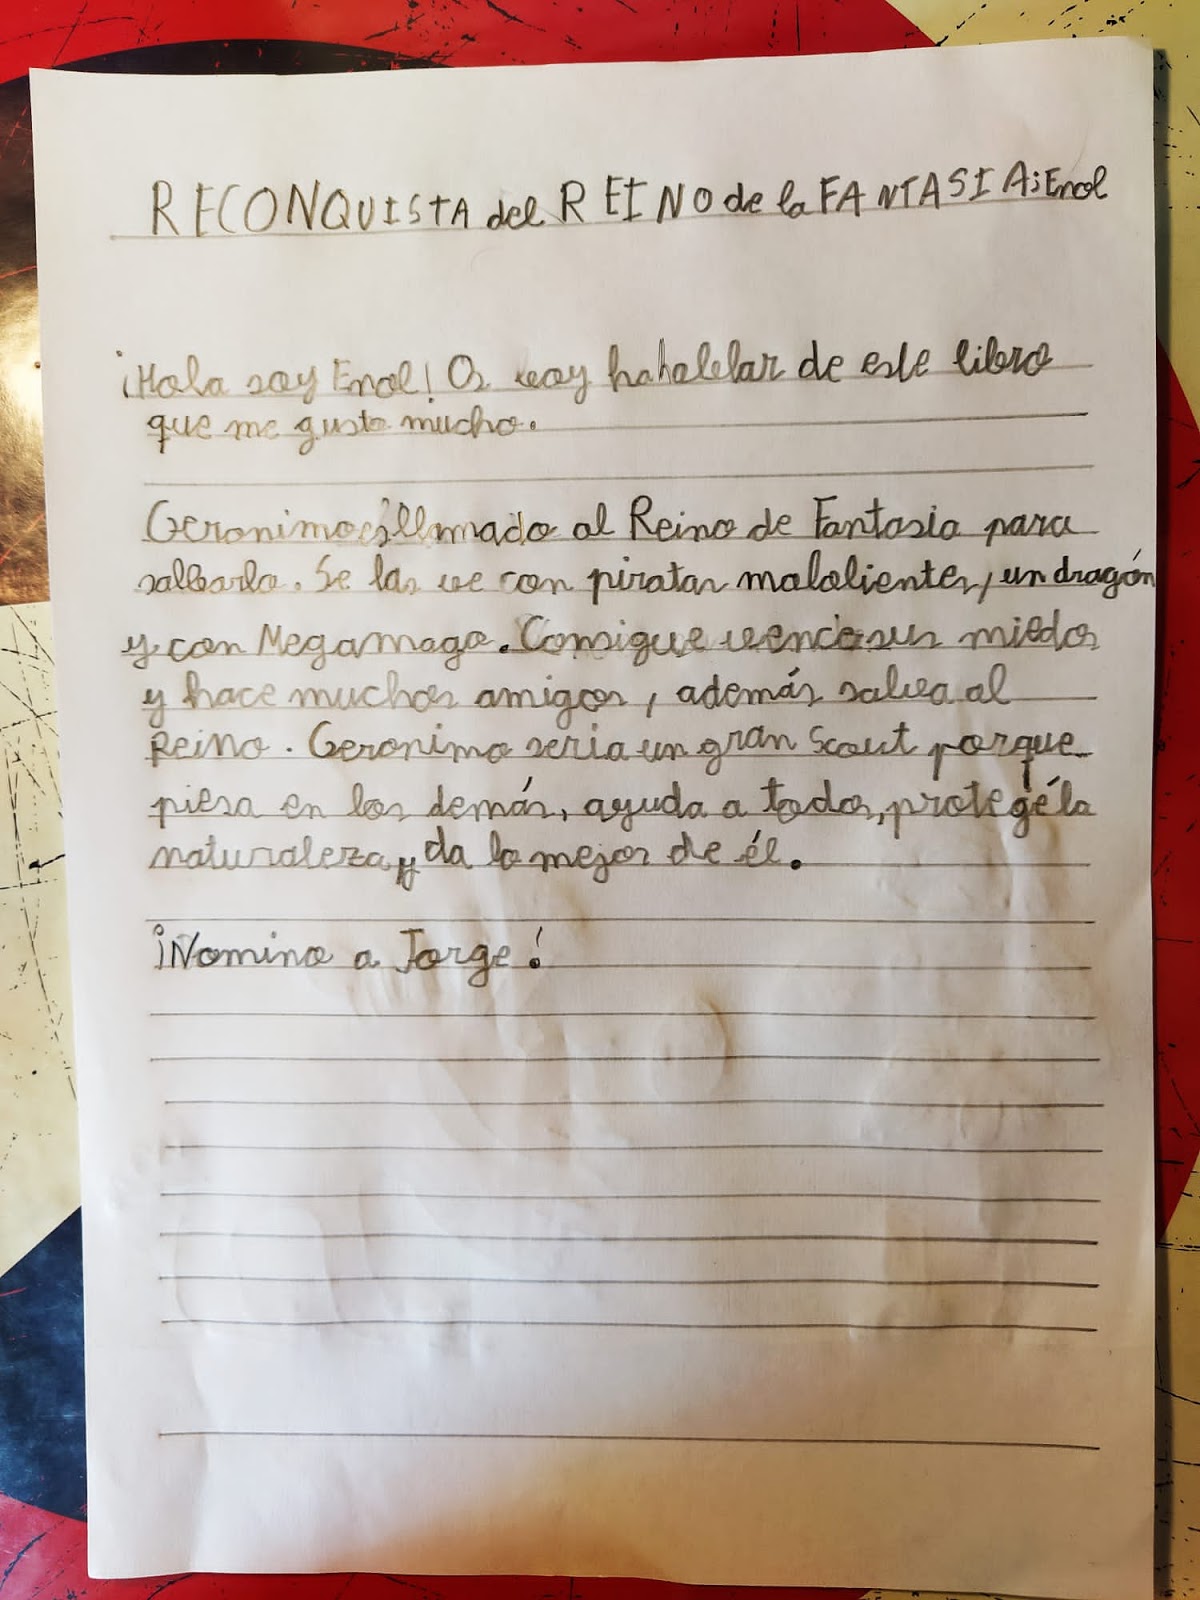 RECONQUISTA del REINO de la FANTASIA; Enol
¡Hola soy Enol! Os voy hahablar de este libro
que me gusto mucho.
Geronimo es llamado al Reino de Fantasia para
salbarlo. Se las ve con piratas malolientes, un dragón
y con Megamago. Consigue vence sus miedos
y hace muchos amigos, además salva al
Reino. Geronimo seria un gran Scout porque
piesa en los demás, ayuda a todos, protegé la
naturaleza y da lo mejor de él.
¡Nomino a Jorge!